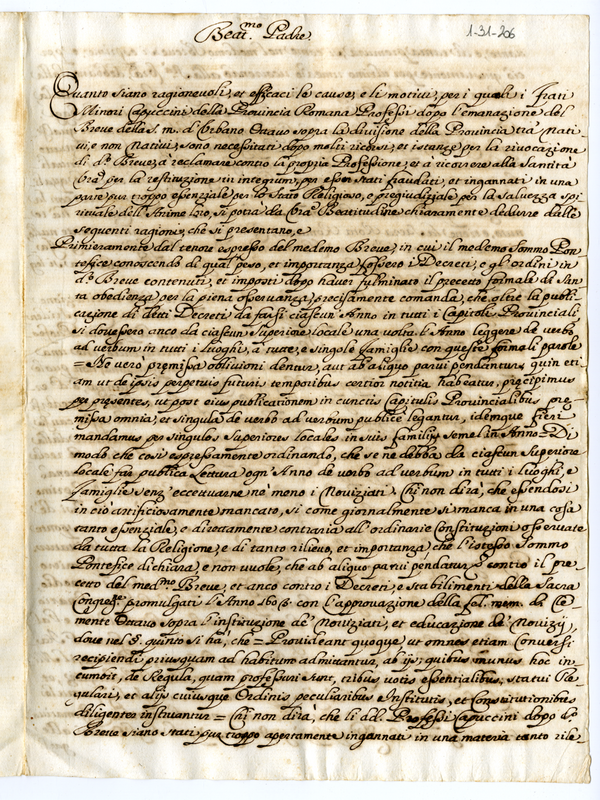 Beat.mo Padre.
1-31-206
Quanto siano ragionevoli, et efficaci le cause, e li motivi, per i quali i Frati
Minori Capuccini della Provincia Romana Professi dopo l'emanazione del
Breve della S. m. d'Urbano Ottavo sopra la divisione della Provincia trà Nati
vi, e non Nativi, sono necessitati dopo molti ricorsi, et istanze per la rivocazione
di d.o Breve, a reclamare contro la propria Professione, et à ricorrere alla Santità
V.ra per la restituzione in integrum, per esser stati fraudati, et ingannati in una
parte pur troppo essenziale per lo Stato Religioso, e pregiudiziale per la salvezza spi
rituale dell'Anime loro, si potrà da V.ra Beatitudine chiaramente dedurre dalle
seguenti ragioni, che si presentano, e
Primieramente dal tenore espresso del medemo Breve, in cui il medemo Sommo Pon=
tefice conoscendo di qual peso, et importanza fossero i Decreti, e gl'ordini in
d.o Breve contenuti, et imposti dopo haver fulminato il precetto formale di San
ta obedienza per la piena osservanza, precisamente comanda, che oltre la publi=
cazione di detti Decreti da farsi ciascun Anno in tutti i Capitoli Provinciali
si dovessero anco da ciascun Superiore locale una volta l'Anno leggere de verbo
ad verbum in tutti i luoghi, à tutte, e singole famiglie con queste formali parole
= Ne vero premissa oblivioni dentur, aut ab aliquo parvi pendantur, quin eti=
am ut de ipsis perpetuis futuris temporibus certior notitia habeatur, precipimus
per presentes, ut post eius publicationem in cunctis Capitulis Provincialibus pre=
missa omnia, et singula de verbo ad verbum publice legantur, idemque fieri
mandamus per singulos Superiores locales in suis familijs semel in Anno = Di
modo che così espressamente ordinando, che se ne debba da ciascun Superiore
locale far publica lettura ogn'Anno de verbo ad verbum in tutti i luoghi, e
famiglie senz'eccettuarne nè meno i Noviziati. Chi non dirà, che essendosi
in ciò artificiosamente mancato, si come giornalmente si manca in una cosa
tanto essenziale, e direttamente contraria all'ordinarie Constituzioni osservate
da tutta la Religione, e di tanto rilievo, et importanza, che l'istesso Sommo
Pontefice dichiara, e non vuole, che ab aliquo parvi pendatur, e contro il pre=
cetto del med.mo Breve, et anco contro i Decreti, e stabilimenti della Sacra
Congreg.ne promulgati l'Anno 1603. con l'approvazione della fel. mem. di Cle=
mente Ottavo sopra l'instituzione de' Noviziati, et educazione de' Novizij,
dove nel §. quinto si hà, che = Provideant quoque, ut omnes etiam Conversi
recipiendi priusquam ad habitum admittantur, ab ijs, quibus munus hoc in=
cumbit, de Regula, quam professuri sunt, tribus votis essentialibus, statui Re
gulari, et alijs cuiusque Ordinis peculiaribus Institutis, et Constitutionibus
diligenter instruantur = Chi non dirà, che li dd. Professi Capuccini dopo d.o
Breve siano stati pur troppo apertamente ingannati in una materia tanto rile=